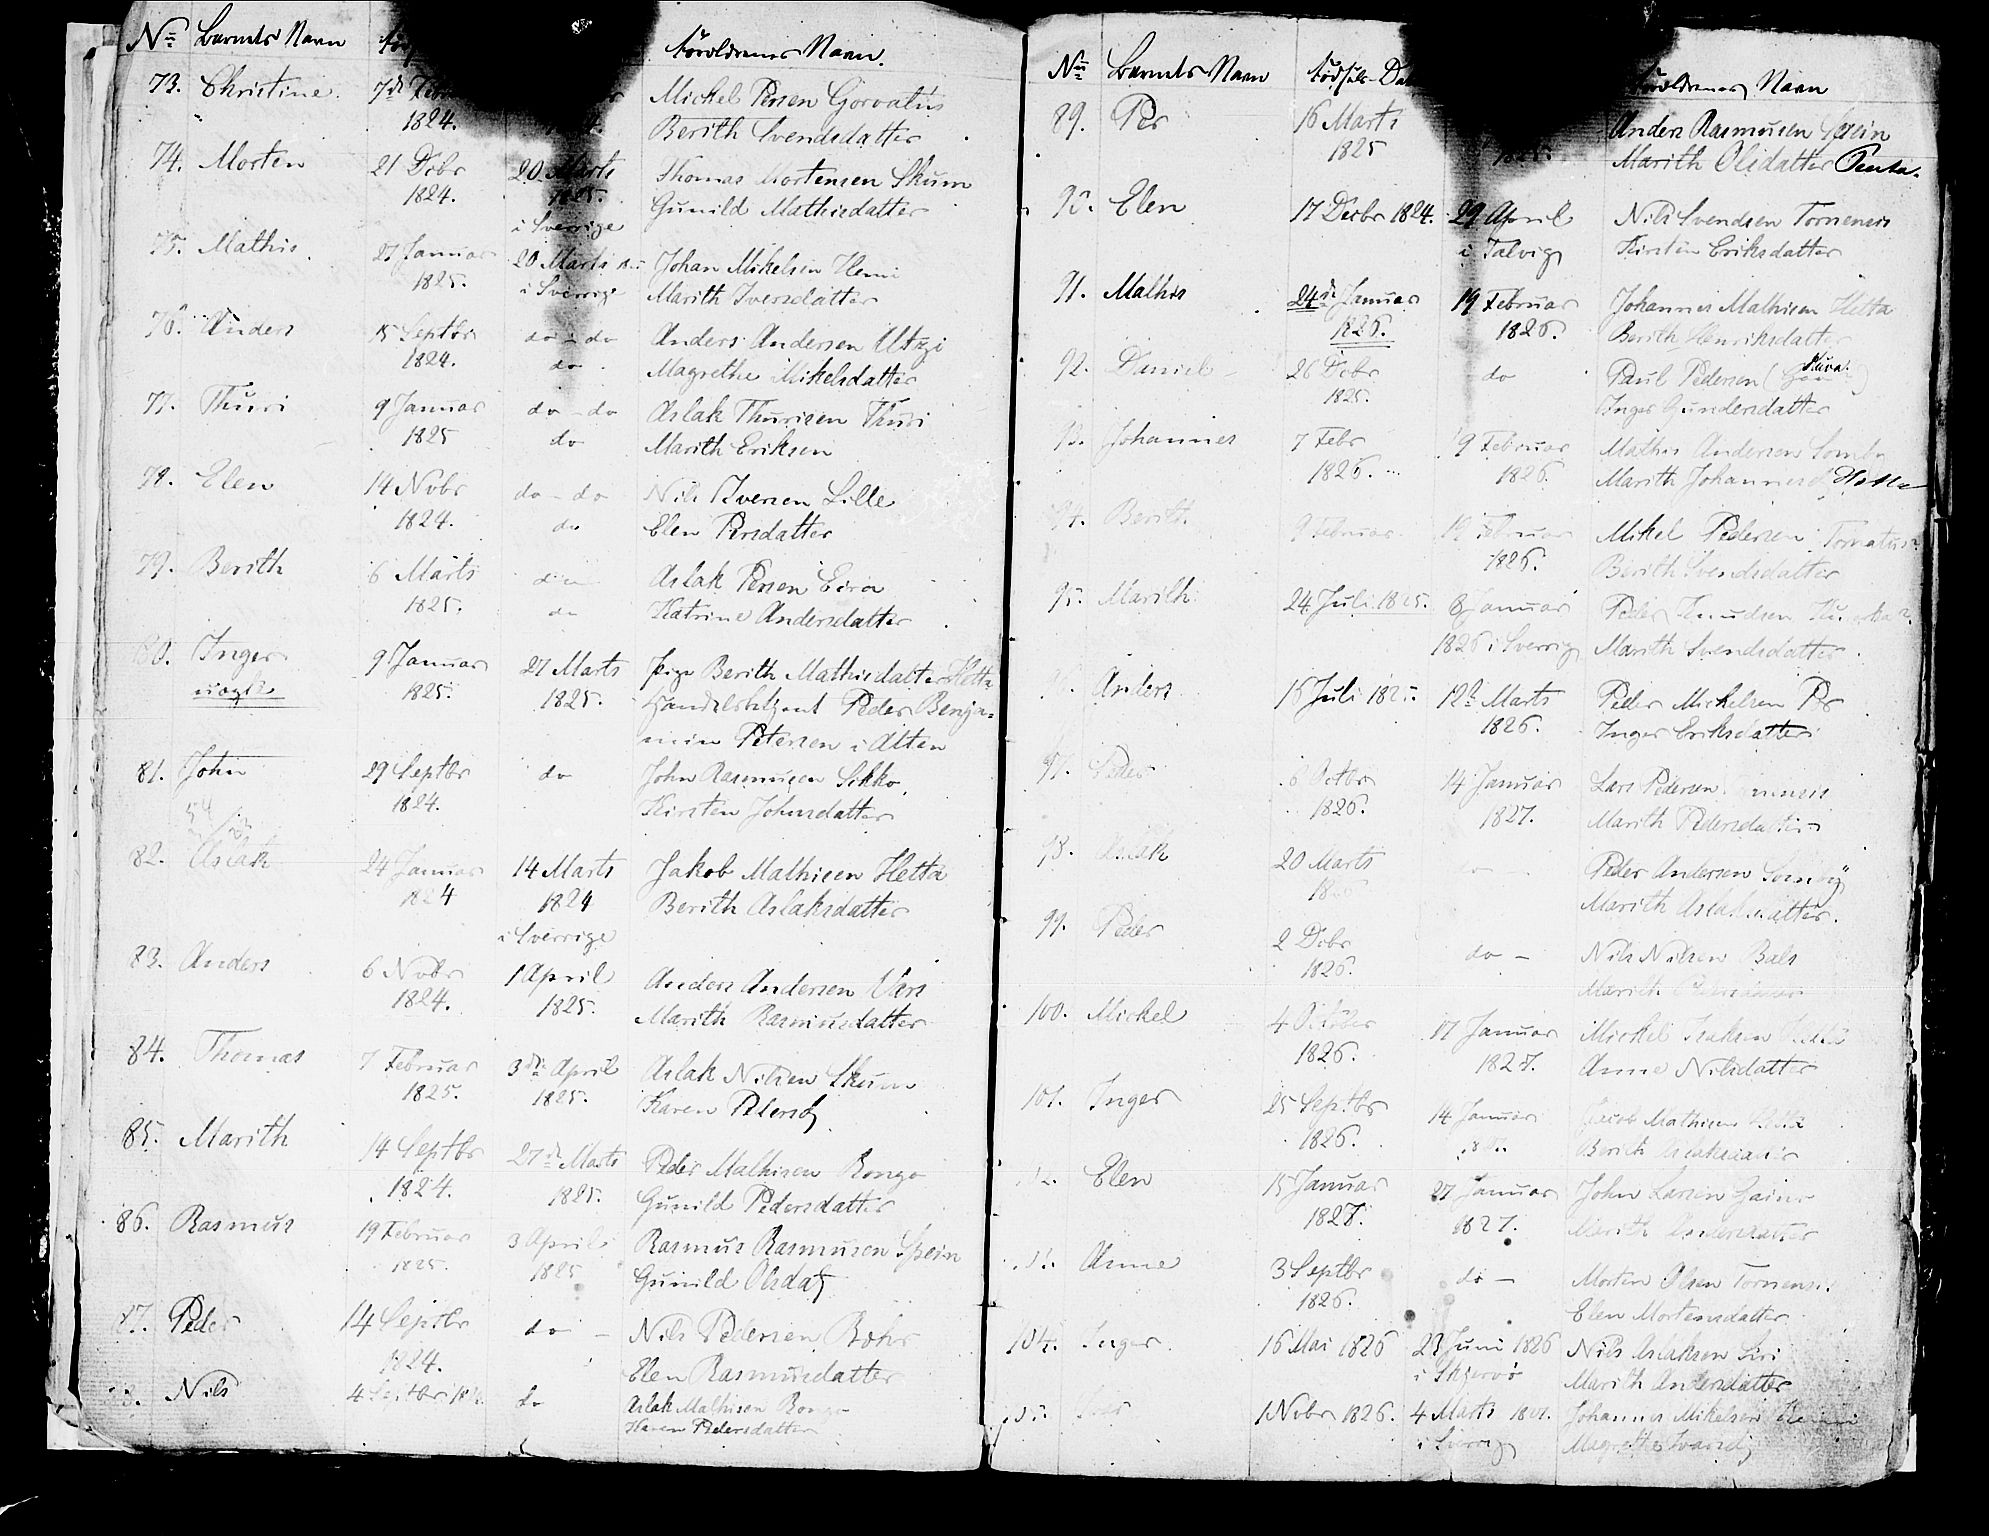 No Barnets Navn Forældrenes Navn.
73. Christine. 7de Febr Mickel Persen Gorvatus
1824. Berith Svendsdatter
74. Morten 21 Debr 20 Marts Thomas Mortensen Skum
1824. 1825. Gunild Mathisdatter
i Sverrige
75. Mathis 27 Januar 20 Marts Johan Mikelsen Hemi
1825. i Sverrige Marith Iversdatter
76. Anders 15 Septbr do - do Anders Andersen Utzi
1824. do Magrethe Mikelsdatter
77. Thuri 9 Januar do - do Aslak Thurisen Thuri
1825 do Marith Eriksen
78. Elen 14 Novbr do - do Nils Iversen Lille
1824. do Elen Persdatter
79. Berith 6 Marts do Aslak Persen Eira
1825. do Katrine Andersdatter
80. Inger 9 Januar 27 Marts Pige Berith Mathisdatter Hetta
uægte 1825. 1825. Handelsbetjent Peder Benja-
min Petersen i Alten
81. John 29 Septbr do John Rasmusen Sikko
1824. Kirsten Johnsdatter
82. Aslak 24 Januar 14 Marts Jakob Mathisen Hetta
1824 1824 Berith Aslaksdatter
i Sverrige
83. Anders 6 Novbr 1 April Anders Andersen Vars
1824. 1825. Marith Rasmusdatter
84. Thomas 7 Februar 3die April Aslak Nilsen Skum
1825. 1825. Karen Petersd
85. Marith 14 Septbr 27de Marts Peder Mathisen Bongo
1824. 1825. Gunild Pedersdatter
86. Rasmus 19 Februar 3 April Rasmus Rasmusen Spein
1825. 1825 Gunild Olsdat
87. Peder 14 Septbr do - Nils Pedersen
1824. Elen Rasmusdatter
88. Nils 4 Septbr do Aslak Mathisen Bongo
Karen Pedersdatter
No Barnets Navn Fødsels-Da Forældrenes Navn
89. Per 16 Marts Anders Rasmusen Spein
1825 Marith Olsdatter Penta.
90. Elen 17 Decbr 1824. 29 April Nils Svendsen Tornensis
i Talvig Kirsten Eriksdatter
91. Mathis 24de Januar 19 Februar Johannes Mathisen Hetta
1826. 1826. Berith Henriksdatter
92. Daniel 26 Debr do Paul Pedersen
1825. Inger Gundersdatter
93. Johannes 7 Febr 19 Februar Mathis Andersen Somby
1826. 1826. Marith Johannesd Hetta
94. Berith 9 Februar 19 Februar Mikel Pedersen
1826. Berith Svendsdatter
95. Marith 24 Juli 1825. 8 Januar Peder Knudsen
1826 i Sverrig Marith Svendsdatter
96. Anders 15 Juli 1825 12te Marts Peder Mickelsen Per
1826. Inger Eriksdatter
97. Peder 6 Octbr 14 Januar Lars Pedersen
1826. 1827. Marith Pedersdatter
98. Aslak 20 Marts do Peder Andersen Somby
Marith Aslaksdatter.
99. Peder 2 Debr do - Nils Nilsen Bals
1826. Marith
100. Mickel 4 October 17 Januar Mickel Isaksen
1826. 1827. Anne Nilsdatter
101. Inger 25 Septbr 14 Januar Jacob Mathisen Hetta
1826. Berith Aslaksdatter
102. Elen 15 Januar 27 Januar John Larsen Gainer
1827. 1827. Marith Andersdatter
103. Anne 3 Septbr do - Morten Olsen Tornensis
1826. Elen Mortensdatter
104. Inger 16 Mai 1826 23 Juni 1826 Nils Aslaksen Siri
i Skjervø Marith Andersdatter
105. 1 Novbr 1826. 4 Marts Johannes Mikelsen Hemi
i Sverrig Magrethe Ivarsd